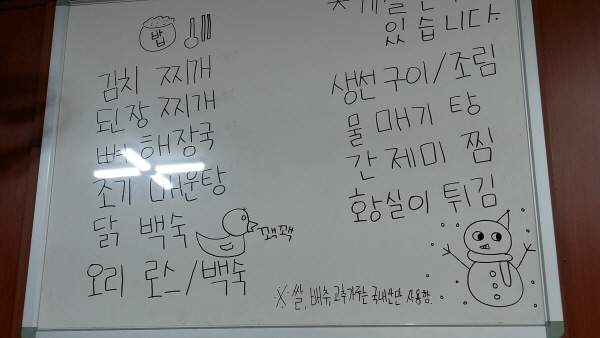 밥
김치 찌개
된장 찌개
뼈 해장국
조기 매운탕
닭 백숙
꽥꽥
오리 로스/백숙
있습니다.
생선구이/조림
물메기 탕
간제미 찜
황실이 튀김
※ 쌀, 배추, 고추가루는 국내산만 사용함.